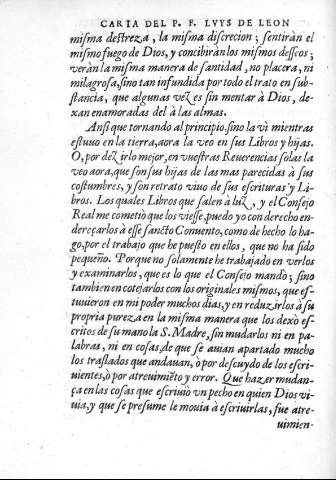 CARTA DEL P. F. LVYS DE LEON
misma destreza, la misma discrecion; sentiràn el
mismo fuego de Dios, y concibiràn los mismos desseos;
veràn la misma manera de santidad, no placera, ni
milagrosa, sino tan infundida por todo el trato en sub-
stancia, que algunas vezes sin mentar à Dios, de-
xan enamoradas del à las almas.
Ansi que tornando al principio, sino la vì mientras
estuuo en la tierra, aora la veo en sus Libros y hijas.
O, por dezirlo mejor, en vuestras Reuerencias solas la
veo aora, que son sus hijas de las mas parecidas à sus
costumbres, y son retrato viuo de sus escrituras y Li-
bros. Los quales Libros que salen à luz, y el Consejo
Real me cometiò que los viesse, puedo yo con derecho en-
dereçarlos à esse sancto Conuento, como de hecho lo ha-
go, por el trabajo que he puesto en ellos, que no ha sido
pequeño. Porque no solamente he trabajado en verlos
y examinarlos, que es lo que el Consejo mandò; sino
tambien en cotejarlos con los originales mismos, que es-
tuuieron en mi poder muchos dias, y en reduzirlos à su
propria pureza en la misma manera que los dexò es-
critos de su mano la S. Madre, sin mudarlos ni en pa-
labras, ni en cosas, de que se auian apartado mucho
los traslados que andauan, ò por descuydo de los escri-
uientes, ò por atreuimiẽto y error. Que hazer mudan-
ça en las cosas que escriuiò vn pecho en quien Dios vi-
uia, y que se presume le mouia à escriuirlas, fue atre-
uimien-